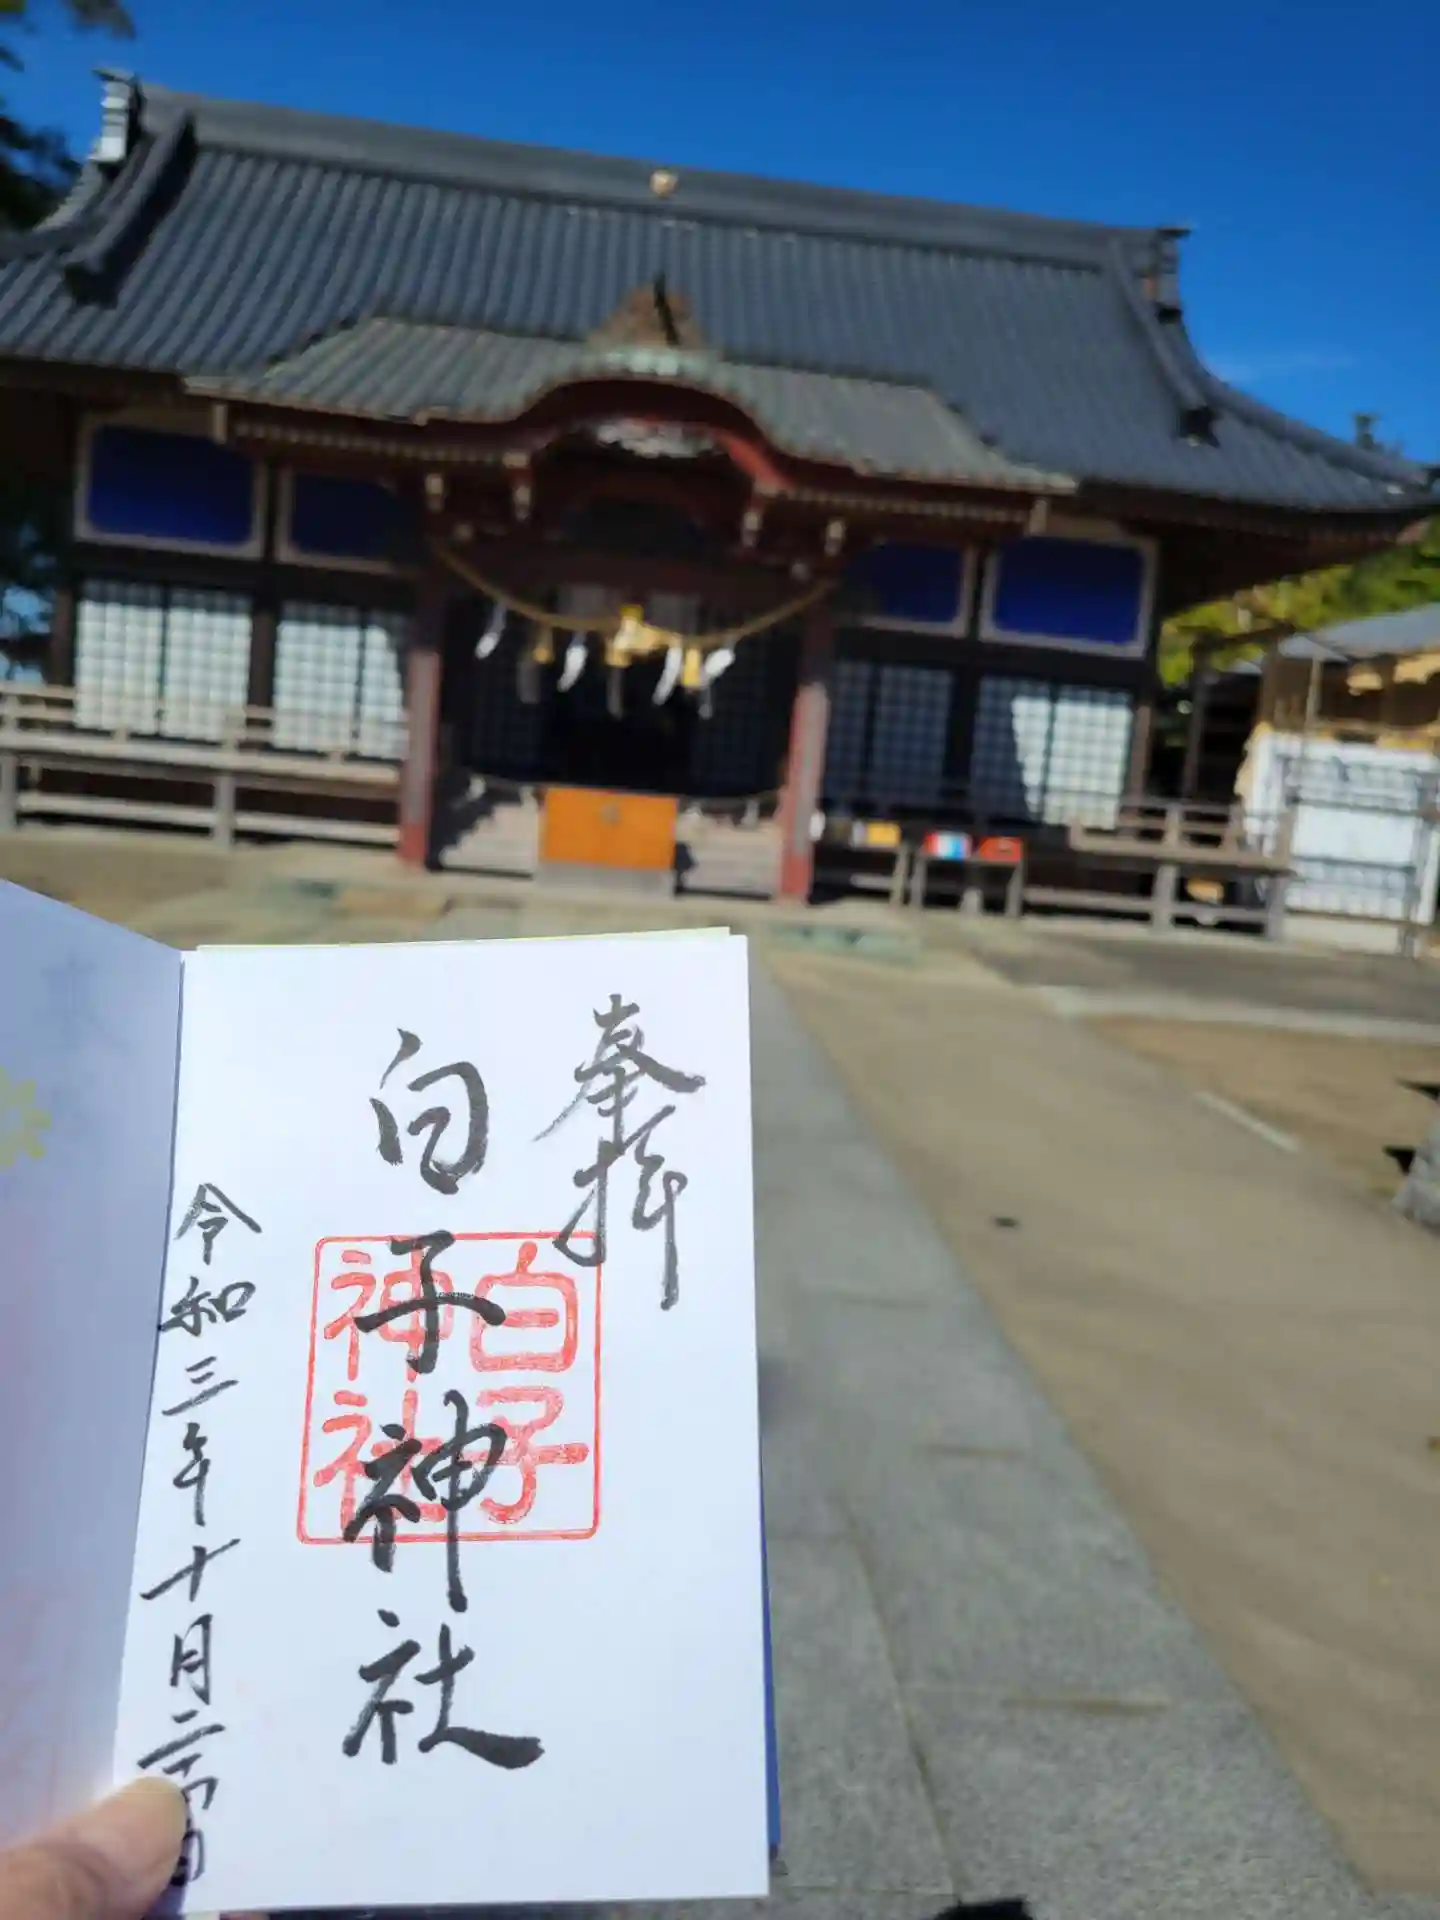 奉拝
白子神社
白子
神社
令和三年十月二